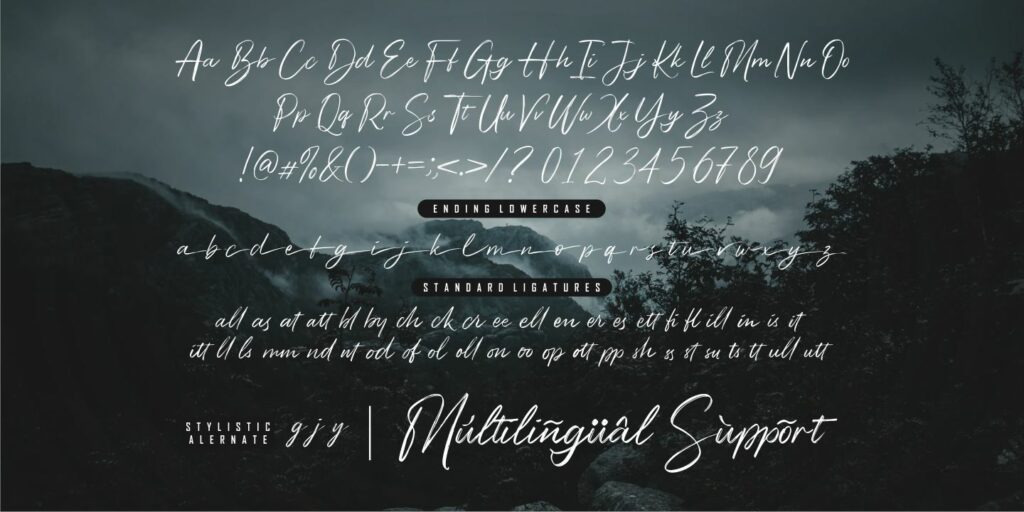 Aa Bb Cc Dd Ee Ff Gg Hh Ii Jj Kk Ll Mm Nn Oo
Pp Qq Rr Ss Tt Uu Vv Ww Xx Yy Zz
!@#%&()-+=;<.>/? 0123456789
ENDING LOWERCASE
a b c d e f g i j k l m n o p q r s t u v w x y z
STANDARD LIGATURES
all as at att bl by ch ck cr ee ell en er es ett fi fl ill in is it
itt ll ls mm nd nt od of ol oll on oo op ott pp sh ss st su ts tt ull utt
STYLISTIC
ALERNATE
g j y
Múltiliñgüâl Sùppõrt